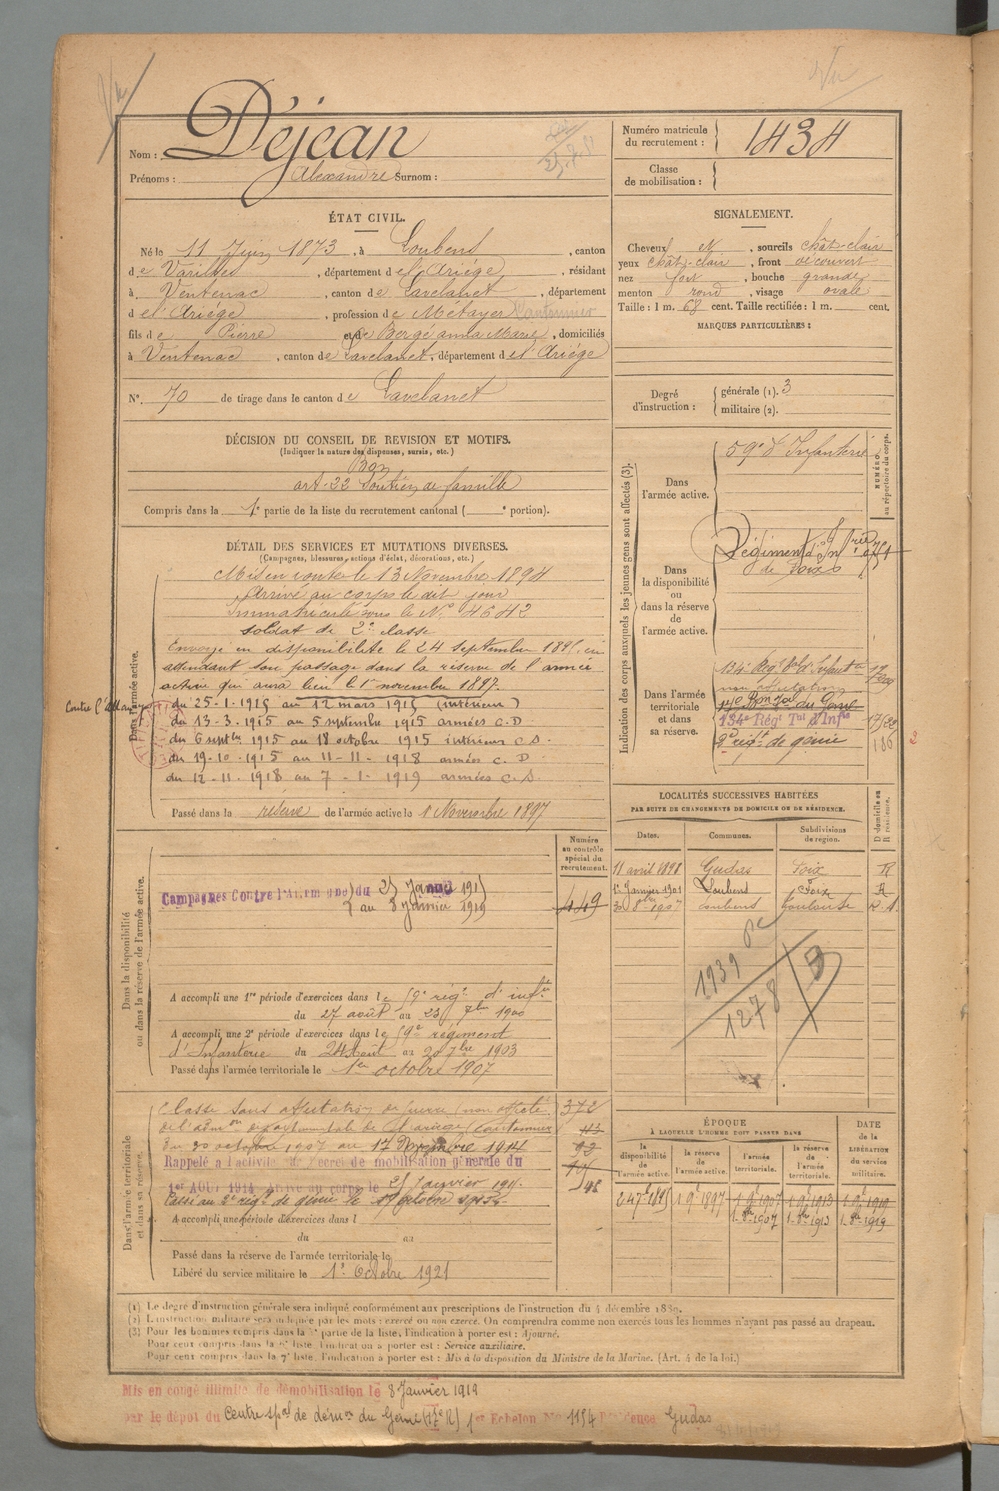 Vu
Vu
Nom : Déjean
Prénoms : Alexandre Surnom :
Numéro matricule du recrutement : 1434
Classe de mobilisation :
ÉTAT CIVIL.
Né le 11 Juin 1873, à Loubens, canton
de Varilhes, département de l'Ariège, résidant
à Ventenac, canton de Lavelanet, département
de l'Ariège, profession de Métayer Cantonnier
fils de Pierre et de Bergé anna Marie, domiciliés
à Ventenac, canton de Lavelanet, département de l'Ariège
N°. 70 de tirage dans le canton de Lavelanet
SIGNALEMENT.
Cheveux N, sourcils chât-clair
yeux chât-clair, front découvert
nez fort, bouche grande
menton rond, visage ovale
Taille : 1 m. 68 cent. Taille rectifiée : 1 m. cent.
MARQUES PARTICULIÈRES :
Degré d'instruction : générale (1). 3
militaire (2).
DÉCISION DU CONSEIL DE REVISION ET MOTIFS.
(Indiquer la nature des dispenses, sursis, etc.)
Bon
art-22 Soutien de famille
Compris dans la 1e partie de la liste du recrutement cantonal ( e portion).
DÉTAIL DES SERVICES ET MUTATIONS DIVERSES.
(Campagnes, blessures, actions d'éclat, décorations, etc.)
Dans l'armée active.
Mis en route le 13 Novembre 1894
Arrivé au corps le dit jour
Immatriculé sous le N° 4642
soldat de 2e classe
Envoyé en disponibilité le 24 septembre 1895, en
attendant son passage dans la réserve de l'armée
active qui aura lieu le 1er novembre 1897.
Contre l'Allemagne
du 25-1-1915 au 12 mars 1915 (intérieur)
du 13-3-1915 au 5 septembre 1915 armées C.D
du 6 septbre 1915 au 18 octobre 1915 intérieur C.S.
du 19-10-1915 au 11-11-1918 armées C.D
du 12-11-1918 au 7-1-1919 armées C.S.
Passé dans la réserve de l'armée active le 1 Novembre 1897
Indication des corps auxquels les jeunes gens sont affectés (3).
NUMÉRO au répertoire du corps.
Dans l'armée active.
59e d'Infanterie
Dans la disponibilité ou dans la réserve de l'armée active.
Régiment d'Infrie
de Foix
Dans l'armée territoriale et dans sa réserve.
134e Régt Tal d'Infante
134e Régt Tal d'Infie
2e régt de génie
186
2
LOCALITÉS SUCCESSIVES HABITÉES
PAR SUITE DE CHANGEMENTS DE DOMICILE OU DE RÉSIDENCE.
Dates. Communes. Subdivisions de région. D domicile ou R résidence.
11 avril 1898 Gudas Foix R
1er Janvier 1901 Loubens Foix R
30 8bre 1907 Loubens Toulouse
1939
1278
Dans la disponibilité ou dans la réserve de l'armée active.
Numéro au contrôle spécial du recrutement.
Campagnes Contre l'Allemagne du 25 Janvier 1915
au 8 Janvier 1919
449
A accompli une 1re période d'exercices dans le 59e régt d'infie
du 27 août au 23 7bre 1900
A accompli une 2e période d'exercices dans le 59e régiment
d'Infanterie du 24 Août au 20 7bre 1903
Passé dans l'armée territoriale le 1er octobre 1907
Dans l'armée territoriale et dans sa réserve.
Classé sans affectation de guerre (non affecté)
de l'admon départementale de l'ariège (cantonnier
du 30 octobre 1907 au 17 Novembre 1914
Rappelé à l'activité Décret de mobilisation générale du
1er AOUT 1914 Arrivé au corps le 25 Janvier 1915
Passé au 2e régt de génie le
372
A accompli une période d'exercices dans l
du au
Passé dans la réserve de l'armée territoriale le
Libéré du service militaire le 1er Octobre 1921
ÉPOQUE
À LAQUELLE L'HOMME DOIT PASSER DANS
DATE de la LIBÉRATION du service militaire.
la disponibilité de l'armée active. la réserve de l'armée active. l'armée territoriale. la réserve de l'armée territoriale.
24 7e 1895 1 9e 1897 1 9e 1907 1 9e 1913 1 9e 1919
1 8bre 1907 1 8bre 1913 1 8e 1919
(1) Le degré d'instruction générale sera indiqué conformément aux prescriptions de l'instruction du 4 décembre 1889.
(2) L'instruction militaire sera indiquée par les mots : exercé ou non exercé. On comprendra comme non exercés tous les hommes n'ayant pas passé au drapeau.
(3) Pour les hommes compris dans la 4e partie de la liste, l'indication à porter est : Ajourné.
Pour ceux compris dans la 5e liste, l'indication à porter est : Service auxiliaire.
Pour ceux compris dans la 7e liste, l'indication à porter est : Mis à la disposition du Ministre de la Marine. (Art. 4 de la loi.)
Mis en congé illimité de démobilisation le 8 Janvier 1919
par le dépôt du Centre spal de démon du Génie (17e R) 1er Echelon No 1154 Résidence Gudas